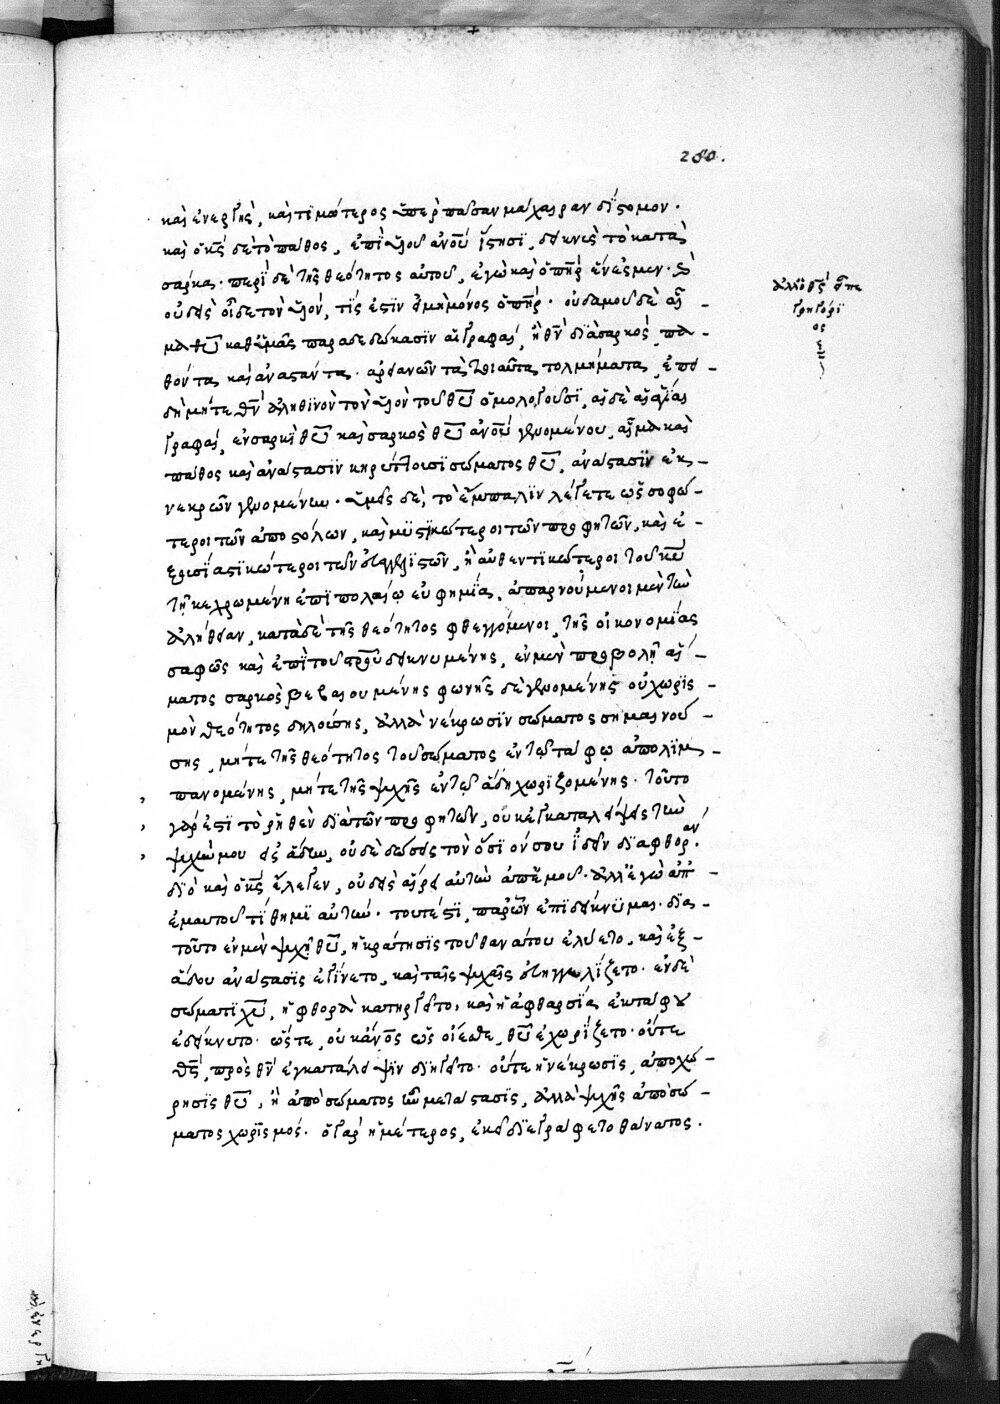 280.
καὶ ἐνεργὴς, καὶ τϊμώτερος ὑπὲρ πᾶσαν μάχαιραν δίστομον.
καὶ ὁ κς̅ δὲ τὸ πάθος, ἐπὶ υἱοῦ ἀνο̅υ ἵστησϊ, δεικνὺς τὸ κατὰ
σάρκα. περὶ δὲ τῆς θεότητος αὐτοῦ, ἐγὼ καὶ ὁ πη̅ρ ἕν ἐσμεν.
οὐδεὶς οἶδε τὸν υἱὸν, τίς ἐστϊν εἰ μὴ μόνος ὁ πη̅ρ. οὐδαμοῦ δὲ αἷ-
μα θυ̅ καθ' ἡμᾶς παραδεδώκασϊν αἱ γραφαί, ἢ θν̅ διὰ σαρκὸς πα-
θόντα καὶ ἀναστάντα. ἀρειανῶν τὰ τοιαῦτα τολμήματα, ἐπει-
δὴ μήτε θν̅ ἀληθϊνὸν τὸν υἱὸν τοῦ θυ̅ ὁμολογοῦσϊ, αἱ δὲ ἅγιαι
γραφαί, ἐν σαρκὶ θυ̅ καὶ σαρκὸς θυ̅ ἀνο̅υ γενομένου, αἷμα καὶ
πάθος καὶ ἀνάστασϊν κηρύττουσι σώματος θυ̅, ἀνάστασϊν ἐκ
νεκρῶν γενομένην. ὑμεῖς δὲ, τὸ ἔμπαλϊν λέγετε ὡς σοφώ-
τεροι τῶν ἀποστόλων, καὶ μϋστϊκώτεροι τῶν προφητῶν, καὶ ἐ-
ξουσϊαστϊκώτεροι τῶν εὐαγγελϊστῶν, ἢ αὐθεντϊκώτεροι τοῦ κυ̅
τῇ κεχρωμένῃ ἐπϊπολαίῳ εὐφημίᾳ, ἀπαρνούμενοι μὲν τὴν
ἀλήθειαν, κατὰ δὲ τῆς θεότητος φθεγγόμενοι, τῆς οἰκονομίας
σαφῶς καὶ ἐπὶ τοῦ στρο̅υ δεικνυμένης, ἐν μὲν προβολῇ αἵ-
ματος σαρκὸς βεβαιουμένης φωνῆς δὲ γενομένης οὐ χωρϊς-
μὸν θεότητος δηλούσης, ἀλλὰ νέκρωσϊν σώματος σημαινού-
σης, μήτε τῆς θεότητος τοῦ σώματος ἐν τῷ τάφῳ ἀπολϊμ-
πανομένης, μήτε τῆς ψυχῆς ἐν τῷ ἅδῃ χωρϊζομένης. τοῦτο
γάρ ἐστϊ τὸ ῥηθὲν διὰ τῶν προφητῶν, οὐκ ἐγκαταλείψεις τὴν
ψυχήν μου εἰς ἅδην, οὐδὲ δώσεις τὸν ὅσϊόν σου ἰδεῖν διαφθοράν.
διὸ καὶ ὁ κς̅ ἔλεγεν, οὐδεὶς αἴρει αὐτὴν ἀπ' ἐμοῦ. ἀλλ' ἐγὼ ἀπ'
ἐμαυτοῦ τίθημϊ αὐτήν. τουτέστϊ, παρὼν ἐπϊδείκνϋμαι. διὰ
τοῦτο ἐν μὲν ψυχῇ θυ̅, ἡ κράτησϊς τοῦ θανάτου ἐλύετο, καὶ ἐξ
ἅδου ἀνάστασϊς ἐγίνετο, καὶ ταῖς ψυχαῖς εὐηγγελίζετο. ἐν δὲ
σώματϊ χυ̅, ἡ φθορὰ κατηργεῖτο, καὶ ἡ ἀφθαρσία ἐκ τάφου
ἐδείκνυτο. ὥστε, οὐκ ἀν̅ος ὡς οἴεσθε, θυ̅ ἐχωρίζετο. οὔτε
θς̅, πρὸς θν̅ ἐγκατάλειψϊν διηγεῖτο. οὔτε ἡ νέκρωσϊς, ἀποχώ-
ρησϊς θυ̅, ἢ ἀπὸ σώματος ἦν μετάστασϊς, ἀλλὰ ψυχῆς ἀπὸ σώ-
ματος χωρϊσμός. ὁ γὰρ ἡμέτερος, ἐκεῖ διεγράφετο θάνατος.